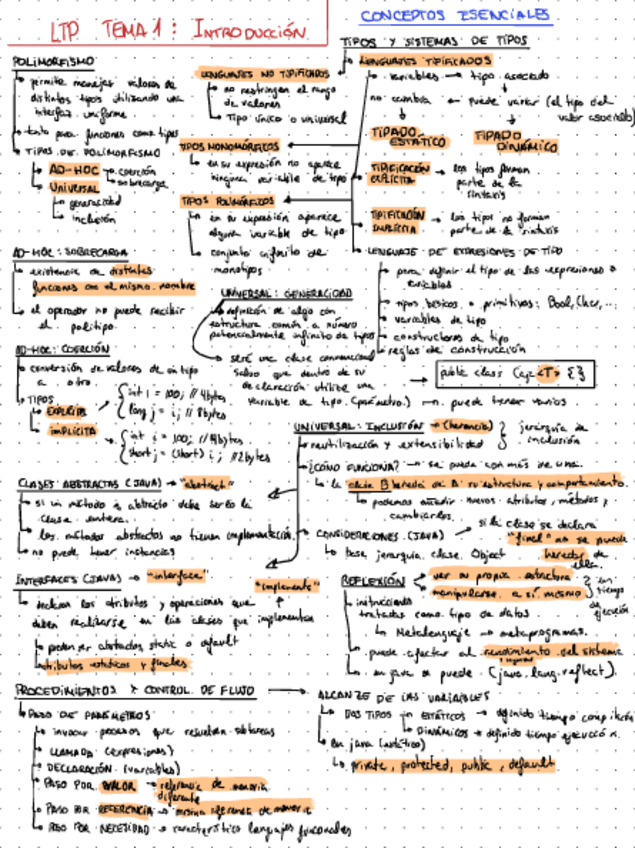 LTP TEMA 1: INTRODUCCIÓN
CONCEPTOS ESENCIALES
TIPOS Y SISTEMAS DE TIPOS
LENGUAJES TIPIFICADOS
variables → tipo asociado
no cambia
puede variar (el tipo del
valor asociado)
TIPADO
ESTÁTICO
TIPADO
DINÁMICO
TIPIFICACIÓN
EXPLÍCITA
los tipos forman
parte de la
sintaxis
TIPIFICACIÓN
IMPLÍCITA
los tipos no forman
parte de la sintaxis
LENGUAJE DE EXPRESIONES DE TIPO
para definir el tipo de las expresiones o
variables
tipos básicos o primitivos: Bool, Char, ...
variables de tipo
constructores de tipo
reglas de construcción
LENGUAJES NO TIPIFICADOS
no restringen el rango
de valores
tipo único o universal
TIPOS MONOMÓRFICOS
en su expresión no aparece
ninguna variable de tipo
TIPOS POLIMÓRFICOS
en su expresión aparece
alguna variable de tipo
conjunto infinito de
monotipos
POLIMORFISMO
permite manejar valores de
distintos tipos utilizando una
interfaz uniforme
tanto para funciones como tipos
TIPOS DE POLIMORFISMO
AD-HOC → coerción
sobrecarga
UNIVERSAL
genericidad
inclusión
AD-HOC: SOBRECARGA
existencia de distintas
funciones con el mismo nombre
el operador no puede recibir
el politipo
AD-HOC: COERCIÓN
conversión de valores de un tipo
a otro.
TIPOS
EXPLÍCITA
int i = 100; // 4bytes
long j = i; // 8bytes
IMPLÍCITA
int i = 100; // 4bytes
short j = (short) i; // 2bytes
UNIVERSAL: GENERICIDAD
definición de algo con
estructura común a número
potencialmente infinito de tipos
será una clase convencional
salvo que dentro de su
declaración utilice una
variable de tipo (parámetro) → puede tener varios
public class <T> { }
UNIVERSAL: INCLUSIÓN → (herencia)
reutilización y extensibilidad
jerarquía de
inclusión
¿CÓMO FUNCIONA? → se puede con más de una.
la clase B hereda de A su estructura y comportamiento.
podemos añadir nuevos atributos, métodos y
cambiarlos.
CONSIDERACIONES (JAVA)
si la clase se declara
"final" no se puede
heredar de
ella.
base jerarquía clase Object
CLASES ABSTRACTAS (JAVA) → "abstract"
si un método es abstracto debe serlo la
clase entera.
los métodos abstractos no tienen implementación
no puede tener instancias
INTERFACES (JAVA) → "interface"
"implements"
declaran los atributos y operaciones que
deben realizarse en las clases que implementan
pueden ser abstractos static o default
atributos estáticos y finales
REFLEXIÓN
ver su propia estructura
manipularse a sí mismo
en
tiempo
de
ejecución
instrucciones
tratadas como tipo de datos
Metalenguaje → metaprogramas.
puede afectar al rendimiento del sistema
en java se puede (java.lang.reflect).
PROCEDIMIENTOS Y CONTROL DE FLUJO
PASO DE PARÁMETROS
invocar procesos que resuelvan subtareas
LLAMADA (expresiones)
DECLARACIÓN (variables)
PASO POR VALOR → referencia de memoria
diferente
PASO POR REFERENCIA → misma referencia de memoria
PASO POR NECESIDAD → característico lenguajes funcionales
ALCANCE DE LAS VARIABLES
DOS TIPOS → ESTÁTICOS → definido tiempo compilación
DINÁMICOS → definido tiempo ejecución.
en java (estático)
private, protected, public, default